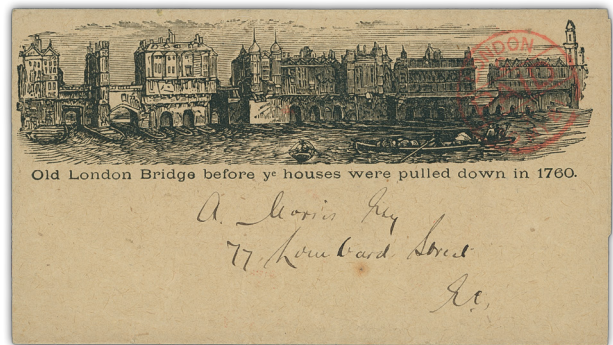 LONDON
Old London Bridge before yᵉ houses were pulled down in 1760.
A. Morris Esq
77, Lombard Street
E.C.